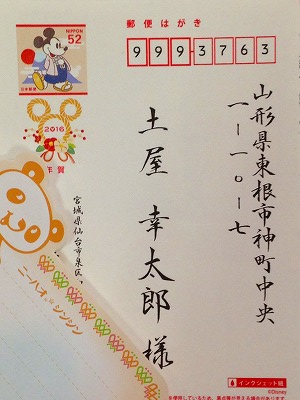 NIPPON
52
日本郵便
郵便はがき
9993763
2016
年賀
山形県東根市神町中央
一ー一〇ー七
土屋 幸太郎 様
宮城県仙台市泉区
ニーハオ☆シンシン
インクジェット紙
©Disney